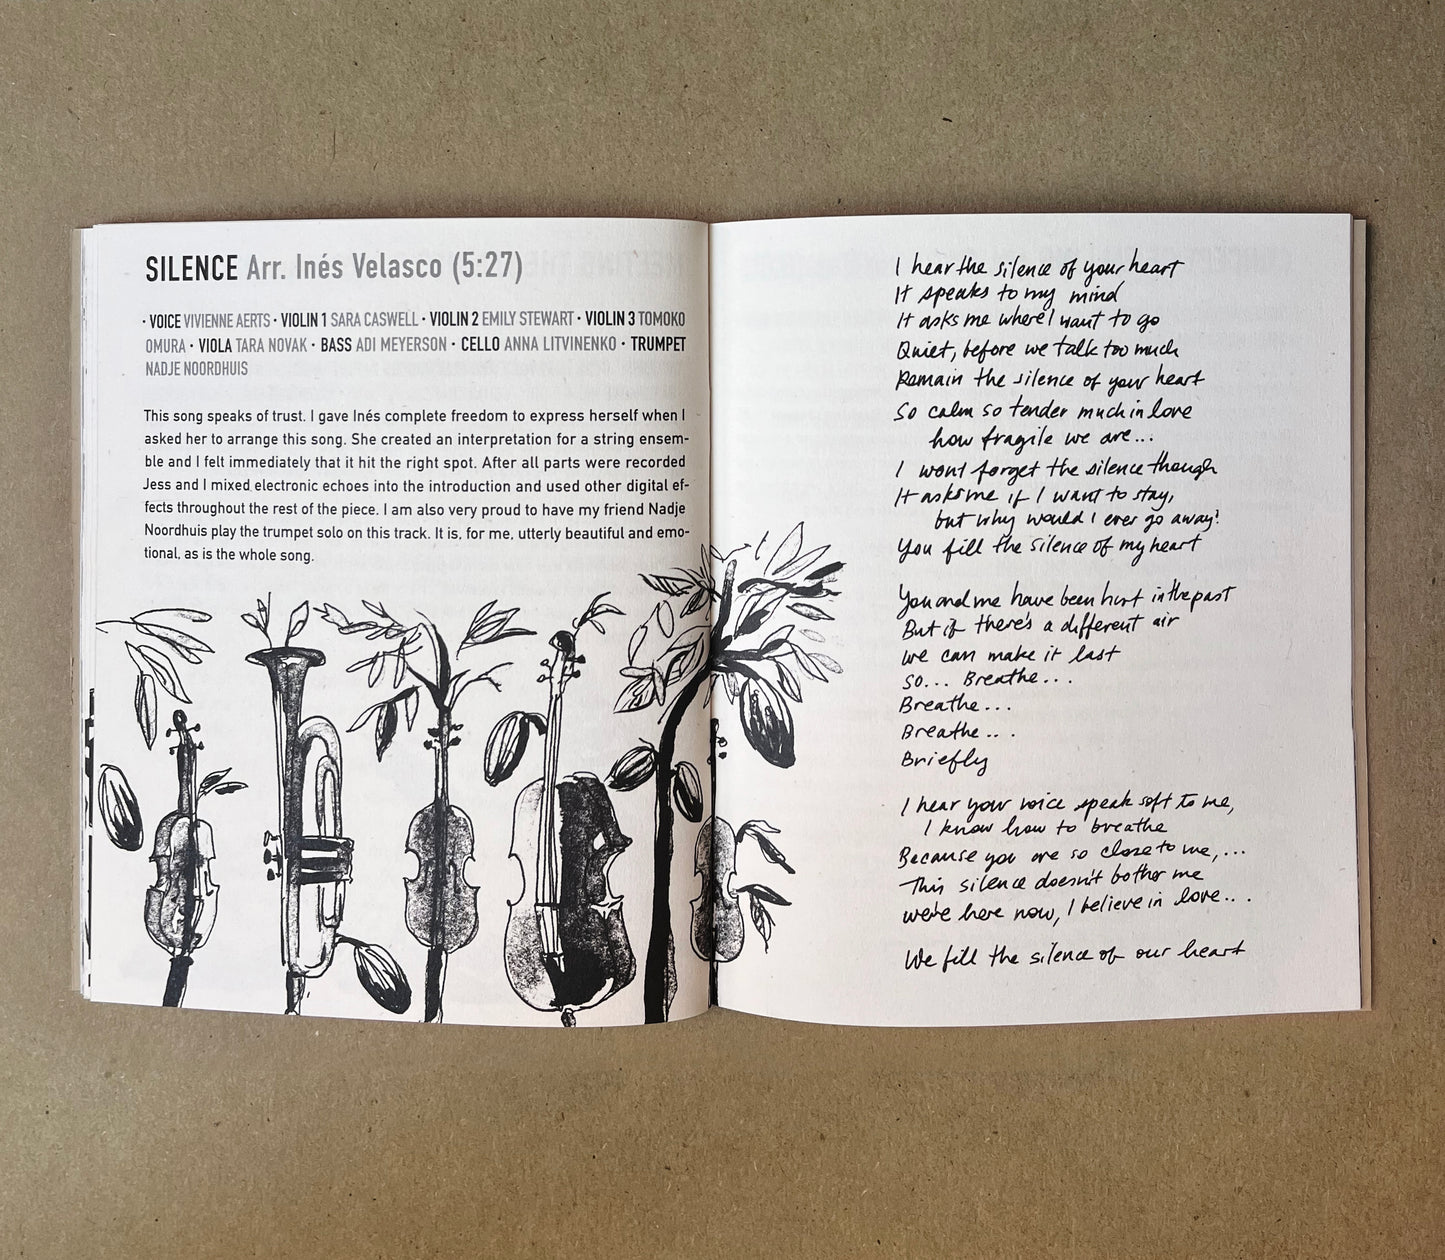 SILENCE Arr. Inés Velasco (5:27)
· VOICE VIVIENNE AERTS · VIOLIN 1 SARA CASWELL · VIOLIN 2 EMILY STEWART · VIOLIN 3 TOMOKO
OMURA · VIOLA TARA NOVAK · BASS ADI MEYERSON · CELLO ANNA LITVINENKO · TRUMPET
NADJE NOORDHUIS
This song speaks of trust. I gave Inés complete freedom to express herself when I
asked her to arrange this song. She created an interpretation for a string ensem-
ble and I felt immediately that it hit the right spot. After all parts were recorded
Jess and I mixed electronic echoes into the introduction and used other digital ef-
fects throughout the rest of the piece. I am also very proud to have my friend Nadje
Noordhuis play the trumpet solo on this track. It is, for me, utterly beautiful and emo-
tional, as is the whole song.
I hear the silence of your heart
It speaks to my mind
It asks me where I want to go
Quiet, before we talk too much
Remain the silence of your heart
So calm so tender much in love
how fragile we are...
I wont forget the silence though
It asks me if I want to stay,
but why would I ever go away?
You fill the silence of my heart
You and me have been hurt in the past
But if there's a different air
we can make it last
so... Breathe...
Breathe...
Breathe...
Briefly
I hear your voice speak soft to me,
I know how to breathe
Because you are so close to me,...
This silence doesn't bother me
we're here now, I believe in love...
We fill the silence of our heart